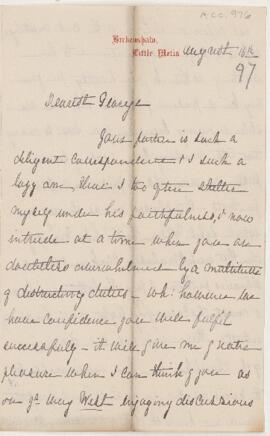 ACC. 976
Birkenshaw,
Little Metis
August 16th
97
Dearest George
Your father is such a
diligent correspondent & I such a
lazy one, that I too often shelter
myself under his faithfulness, & now
intrude at a time when you are
doubtless overwhelmed by a multitude
of distracting duties - wh: however we
have confidence you will fulfil
successfully - it will give me greater
pleasure when I can think of you as
on yr. way West enjoying discussions